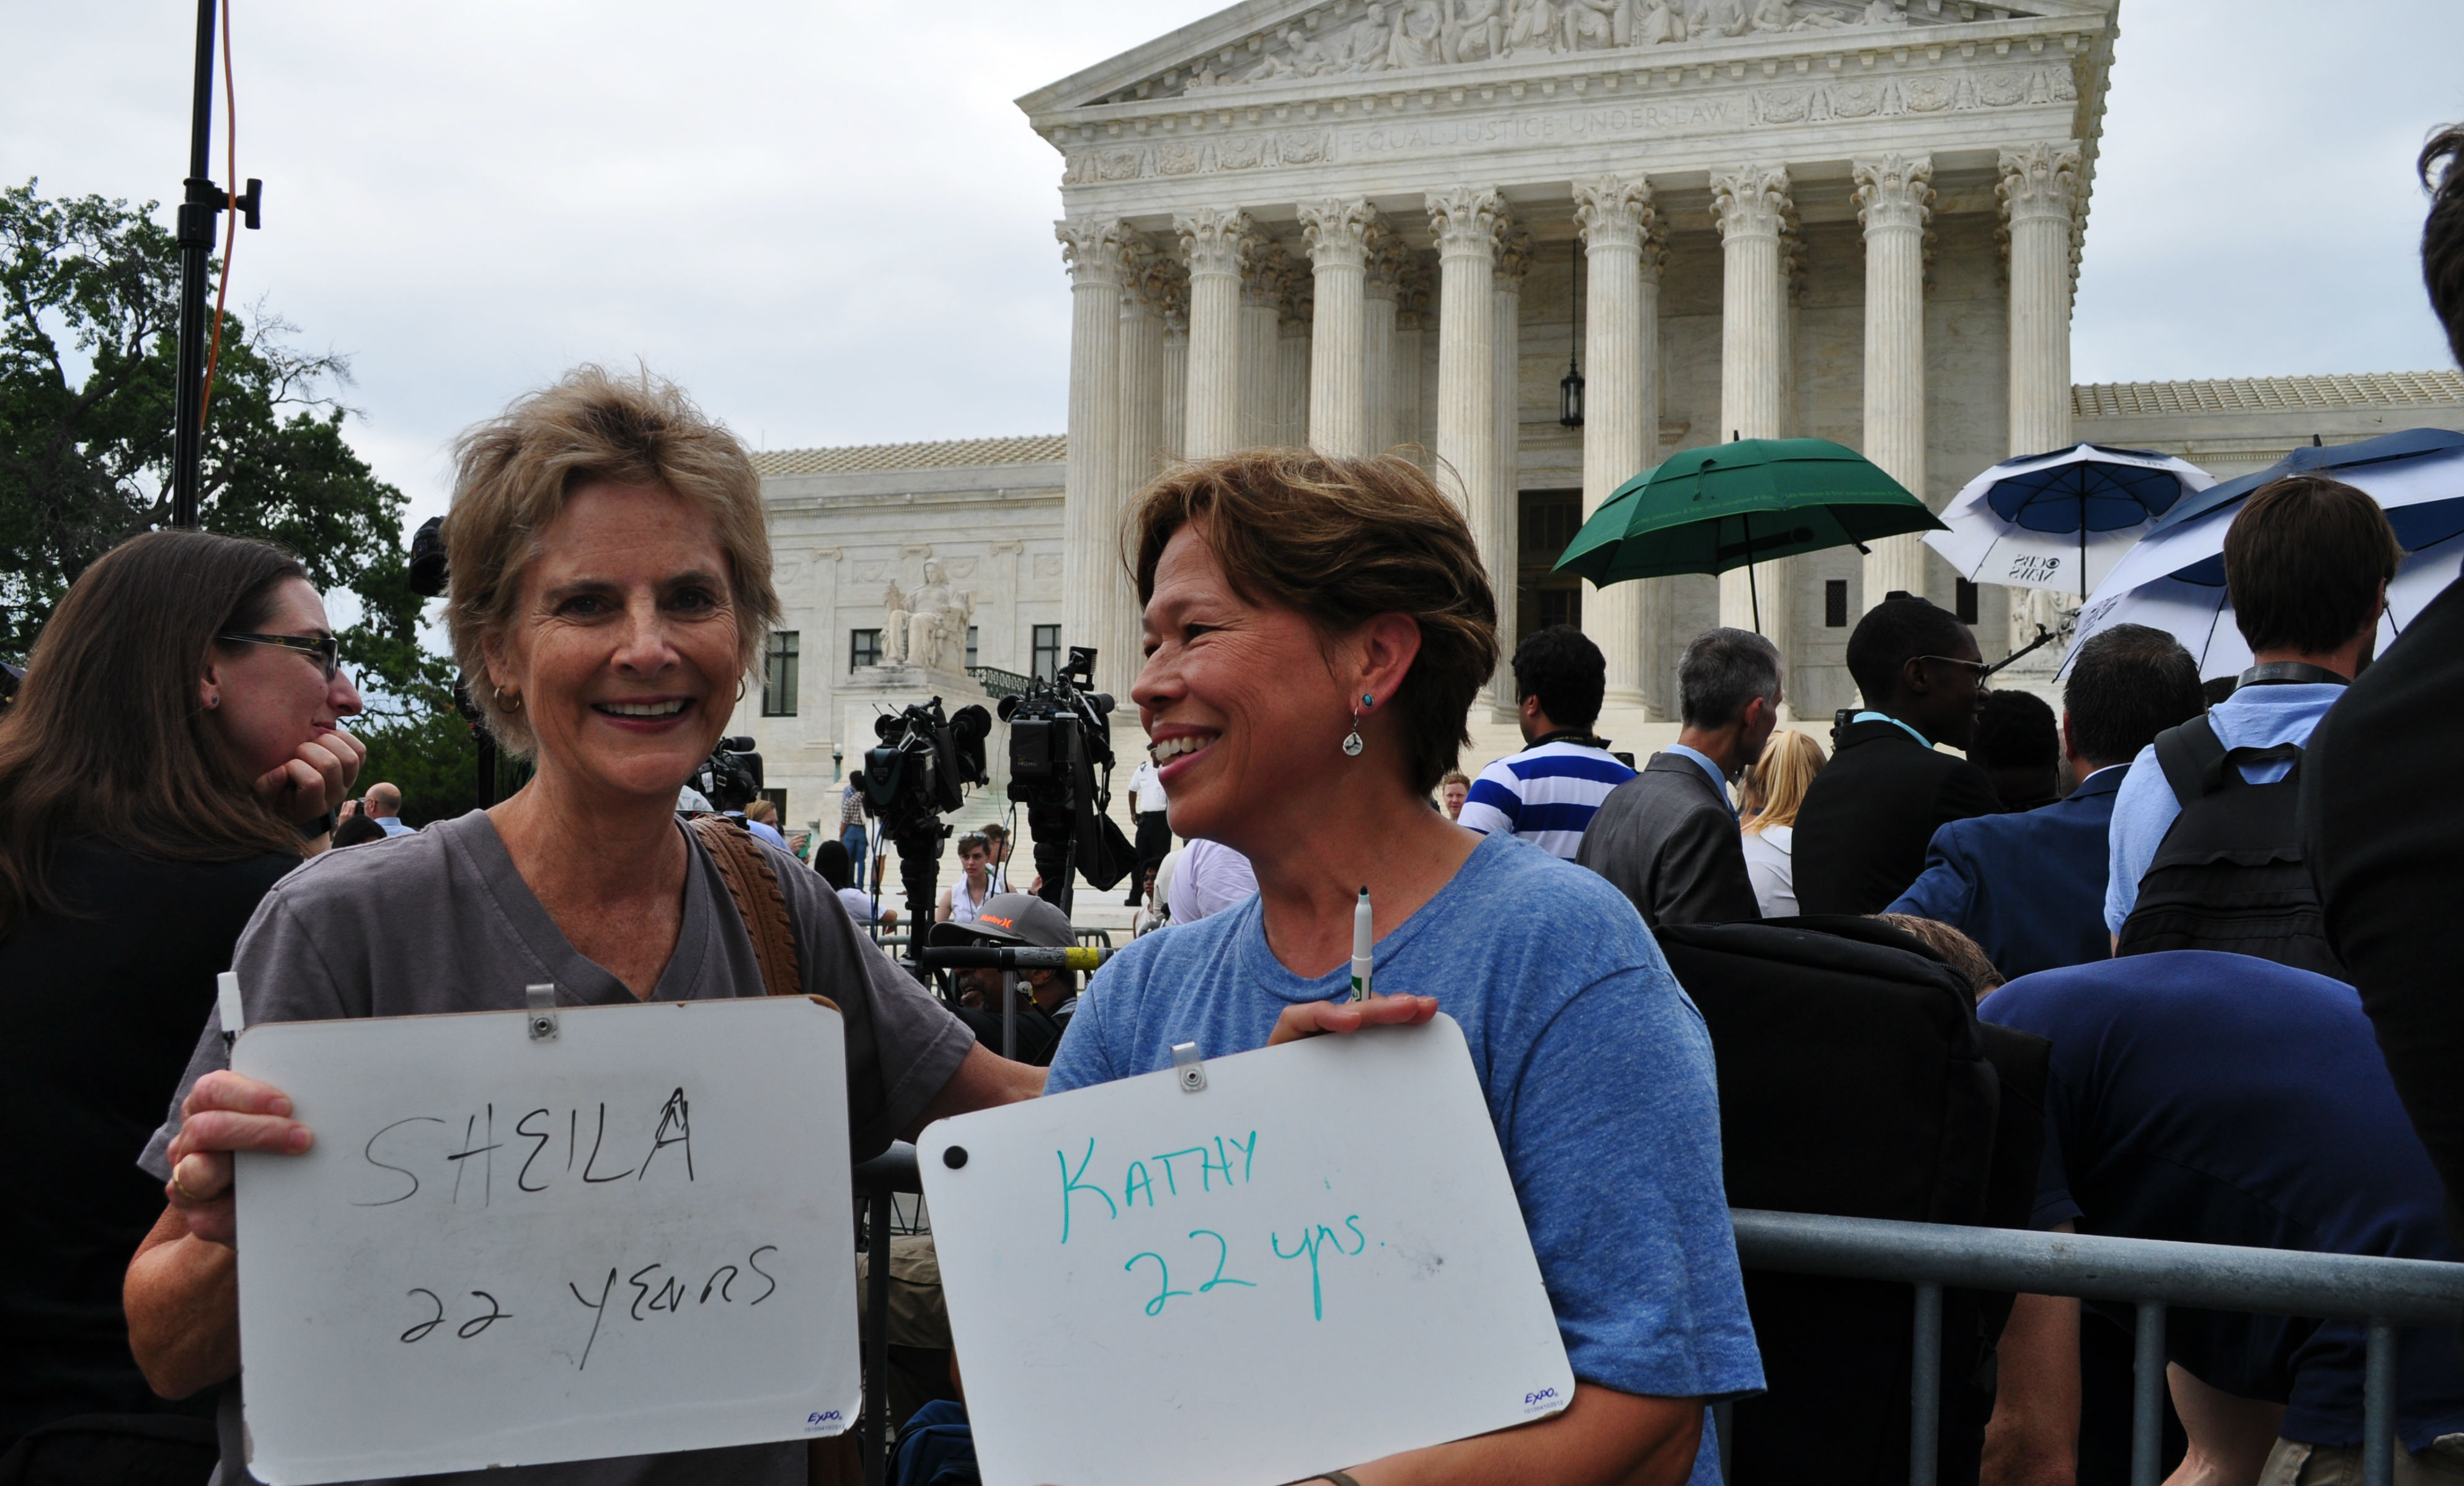 EQUAL JUSTICE UNDER LAW
CBS
NEWS
Hurley
SHEILA
22 YEARS
EXPO
KATHY
22 yrs.
EXPO